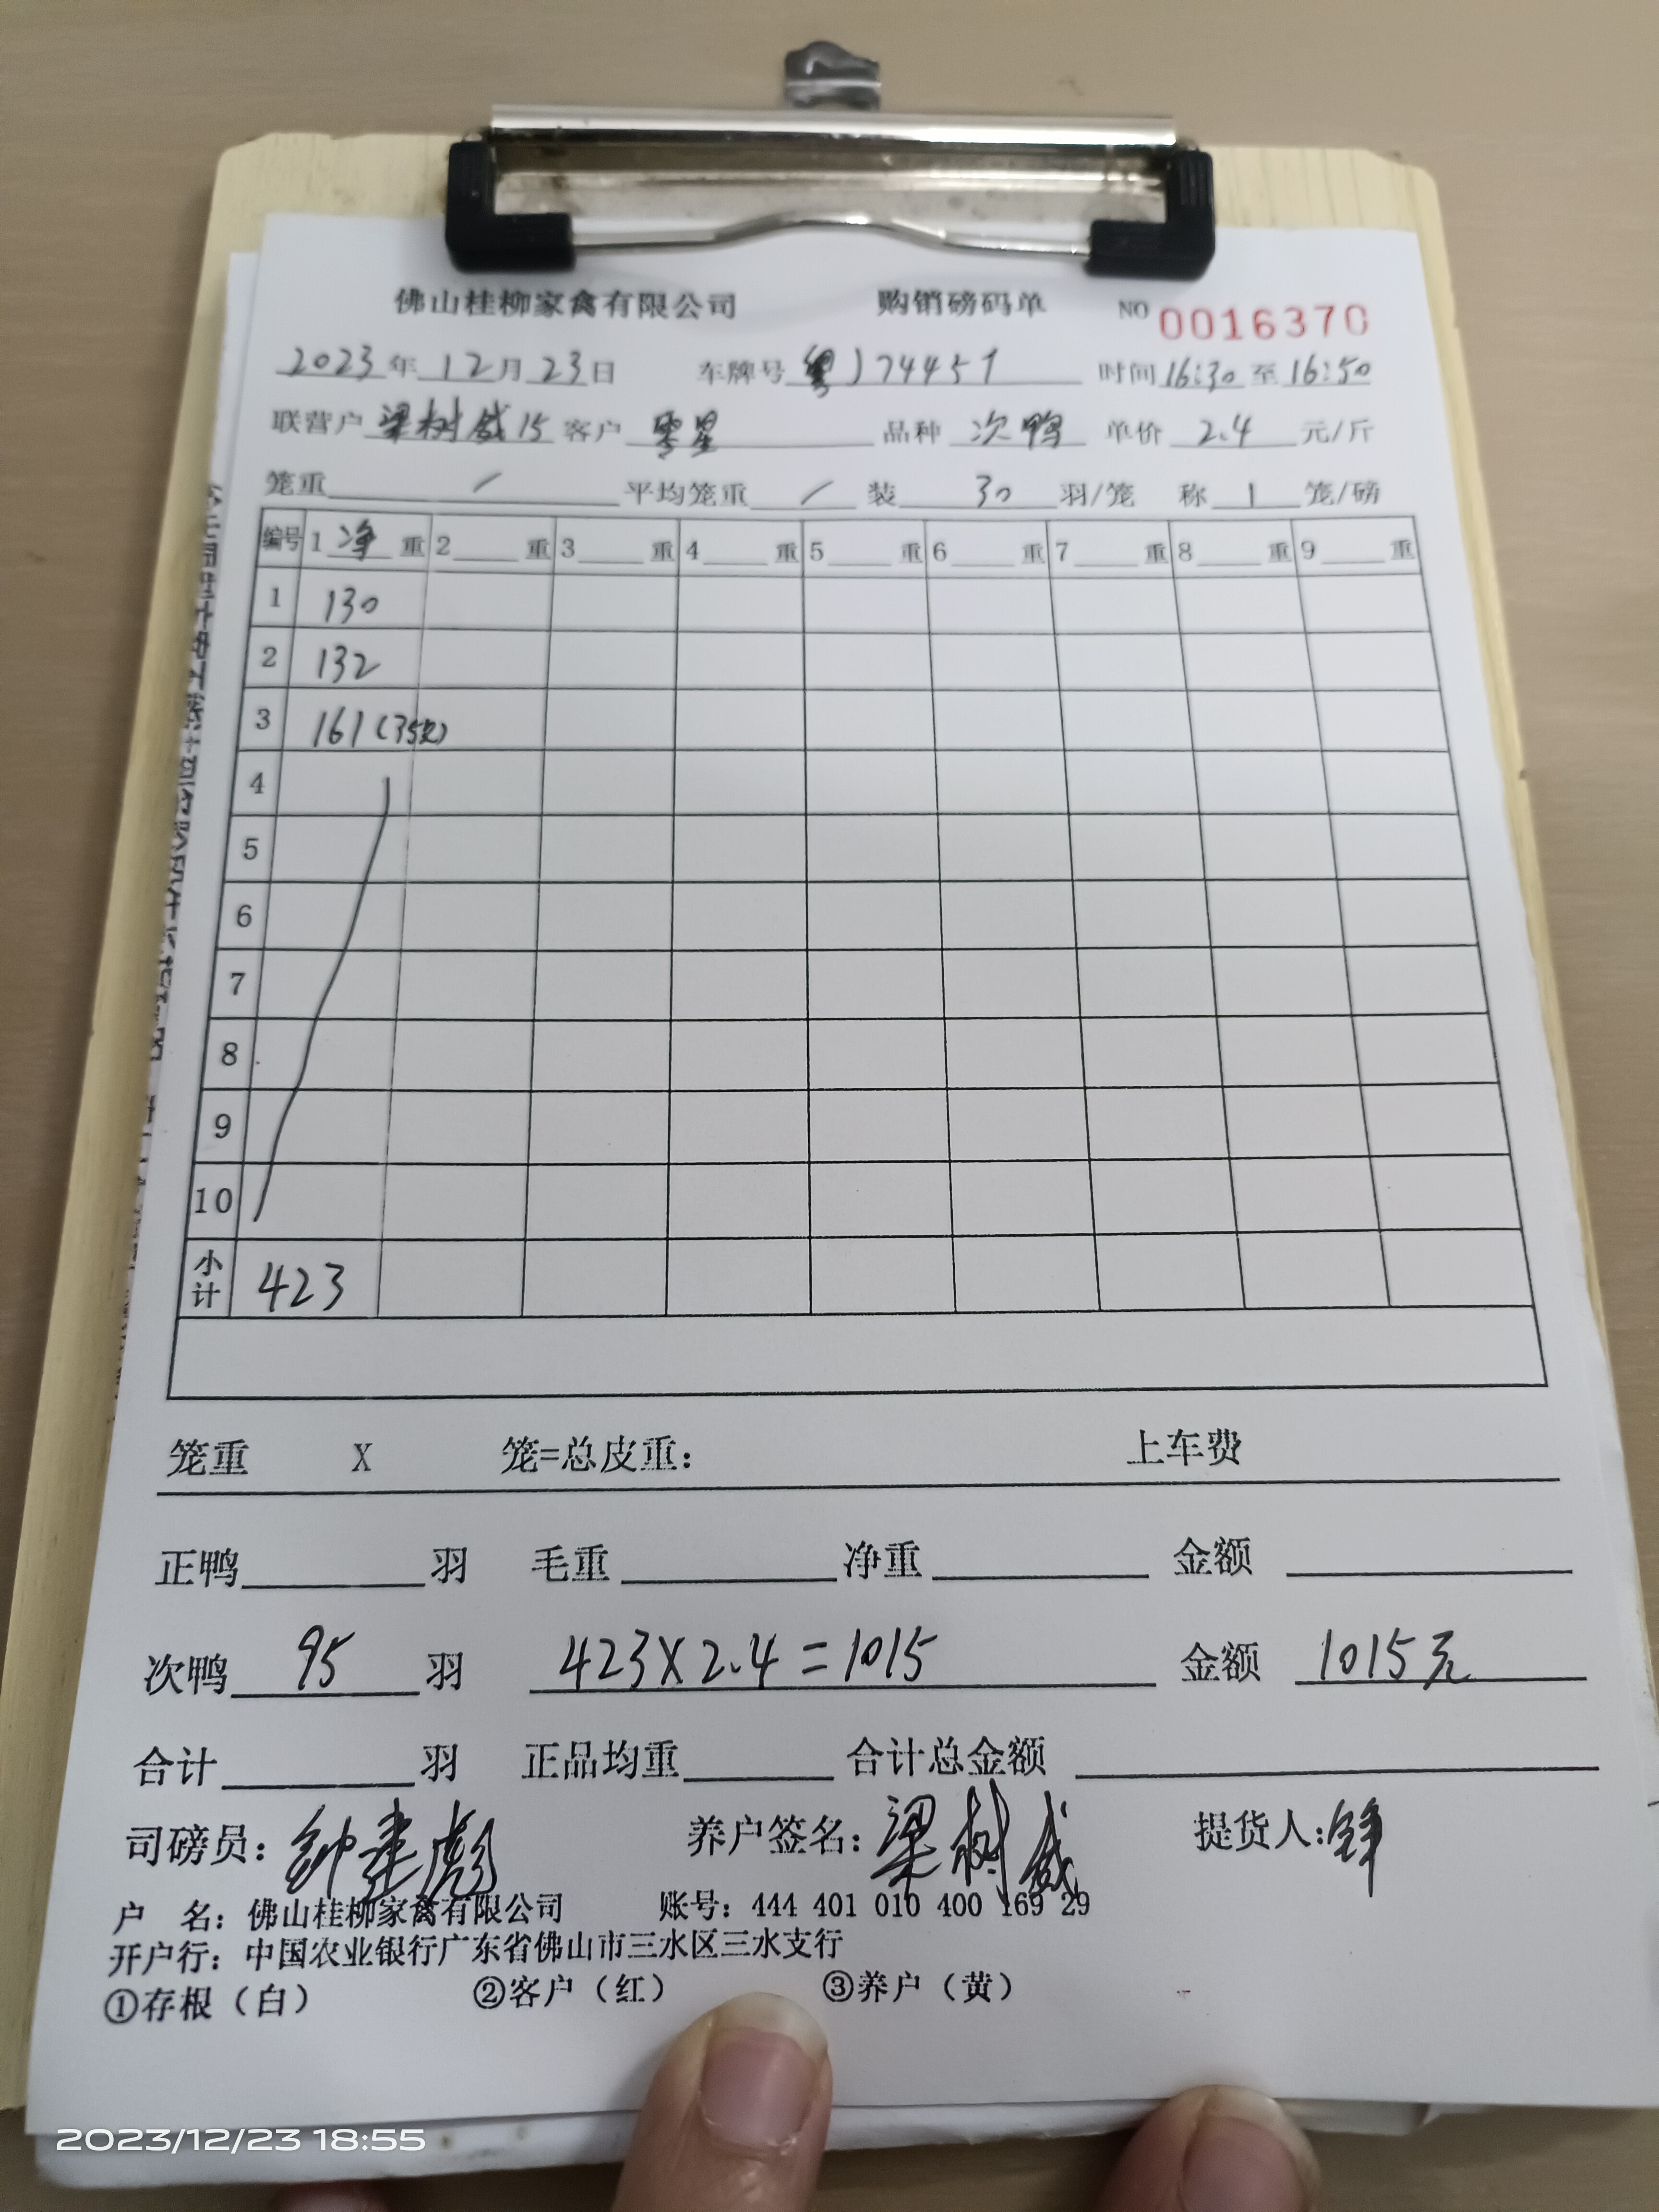 佛山桂柳家禽有限公司 购销磅码单 NO 0016370
2023年12月23日 车牌号 粤J74457 时间16:30至16:50
联营户 梁树威15 客户 零星 品种 次鸭 单价 2.4 元/斤
笼重 / 平均笼重 / 装 30 羽/笼 称 1 笼/磅
编号 1 净 重 2 重 3 重 4 重 5 重 6 重 7 重 8 重 9 重
1 130
2 132
3 161(35只)
4
5
6
7
8
9
10
小计 423
笼重 X 笼=总皮重: 上车费
正鸭 羽 毛重 净重 金额
次鸭 95 羽 423X2.4=1015 金额 1015元
合计 羽 正品均重 合计总金额
司磅员: 钟建彪 养户签名: 梁树威 提货人: 锋
户 名: 佛山桂柳家禽有限公司 账号: 444 401 010 400 169 29
开户行: 中国农业银行广东省佛山市三水区三水支行
①存根（白） ②客户（红） ③养户（黄）
2023/12/23 18:55